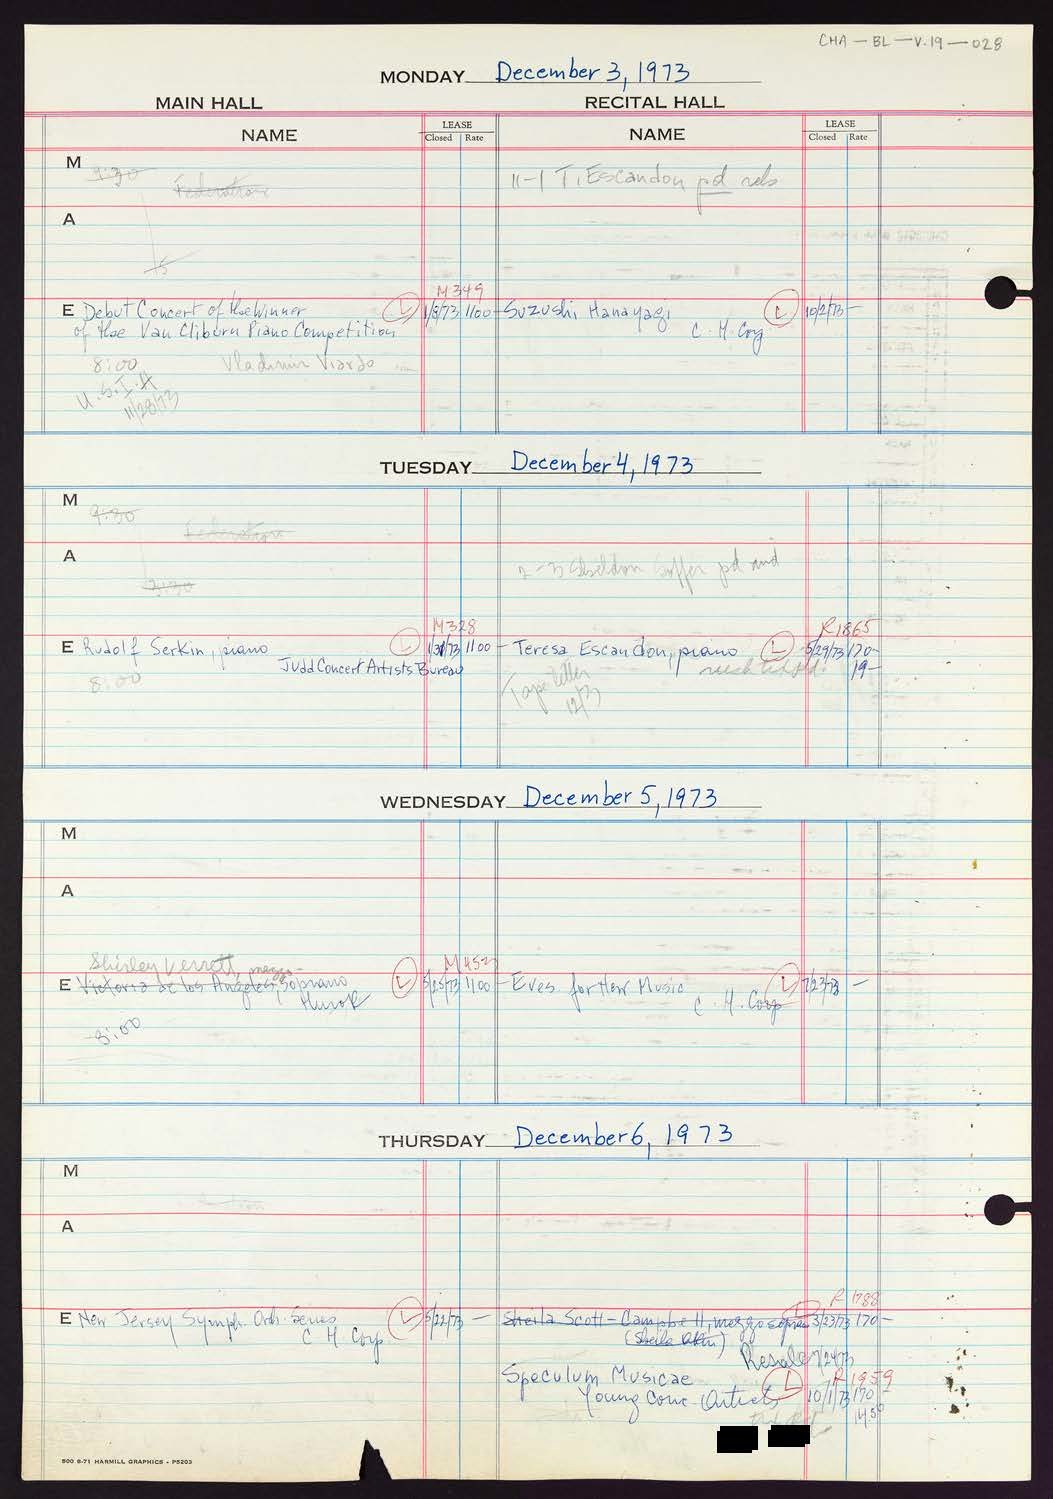 CHA — BL — V.19 — 028
MONDAY December 3, 1973
MAIN HALL RECITAL HALL
NAME LEASE Closed Rate NAME LEASE Closed Rate
M 9:30 11-1 T. Escandon pd rels
Federation
A
5
M 349
E Debut Concert of the Winner L 1/8/73 1100 — Suzushi Hanayagi L 10/2/73 —
of the Van Cliburn Piano Competition C. H. Corp
8:00 Vladimir Viardo
U.S.I.A
11/28/73
TUESDAY December 4, 1973
M 9:30
Federation
A
2-3 Sheldon Soffer pd aud
3:30
M 328 R 1865
E Rudolf Serkin, piano L 1/31/73 1100 — Teresa Escandon, piano L 5/29/73 170—
Judd Concert Artists Bureau 19—
8:00 Tape letter
12/3
WEDNESDAY December 5, 1973
M
A
Shirley Verrett, mezzo- M 452
E Victoria de los Angeles, soprano L 5/25/73 1100 — Eves. for New Music L 7/23/73 —
Hurok C. H. Corp
8:00
THURSDAY December 6, 1973
M
A
R 1788
E New Jersey Symph. Orch. Series L 5/22/73 — Sheila Scott-Campbell, mezzo sopran L 3/23/73 170—
C H Corp (Sheila )
Resale 7/24/73
Speculum Musicae R 1959
Young Conc. Artists L 10/1/73 170—
14.50
500 6-71 HARMILL GRAPHICS - P5203